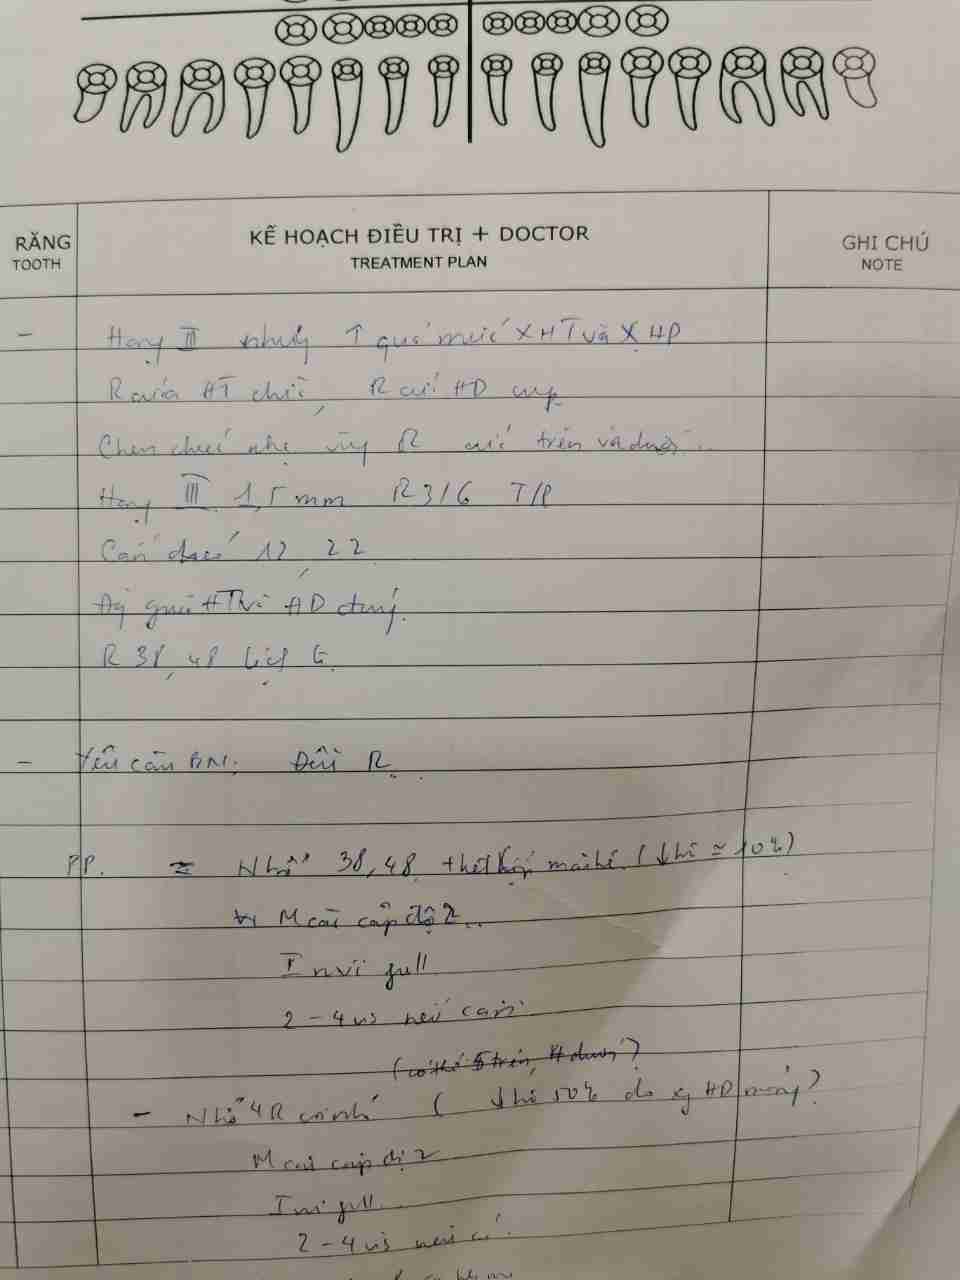 RĂNG
TOOTH
KẾ HOẠCH ĐIỀU TRỊ + DOCTOR
TREATMENT PLAN
GHI CHÚ
NOTE
- Hạng III nhưng ↑ quá mức XHT và XHD
R cửa HT chìa, R cửa HD cụp
Chen chúc nhẹ vùng R cửa trên và dưới.
Hạng III 1,5mm R3/6 T/P
Cắn 12, 22
HT và HD
R 38, 48 lệch
- Yêu cầu BN: Đều R.
PP. Nhổ 38, 48 + (↓hô ≃ 10%)
M cài cấp độ 2..
Invi full
2-4 vis nếu cần.
(có thể 5 trên, 4 dưới?)
- Nhổ 4R (↓hô 50% do HD mỏng?
M cài cấp độ 2
Invi full
2-4 vis nếu